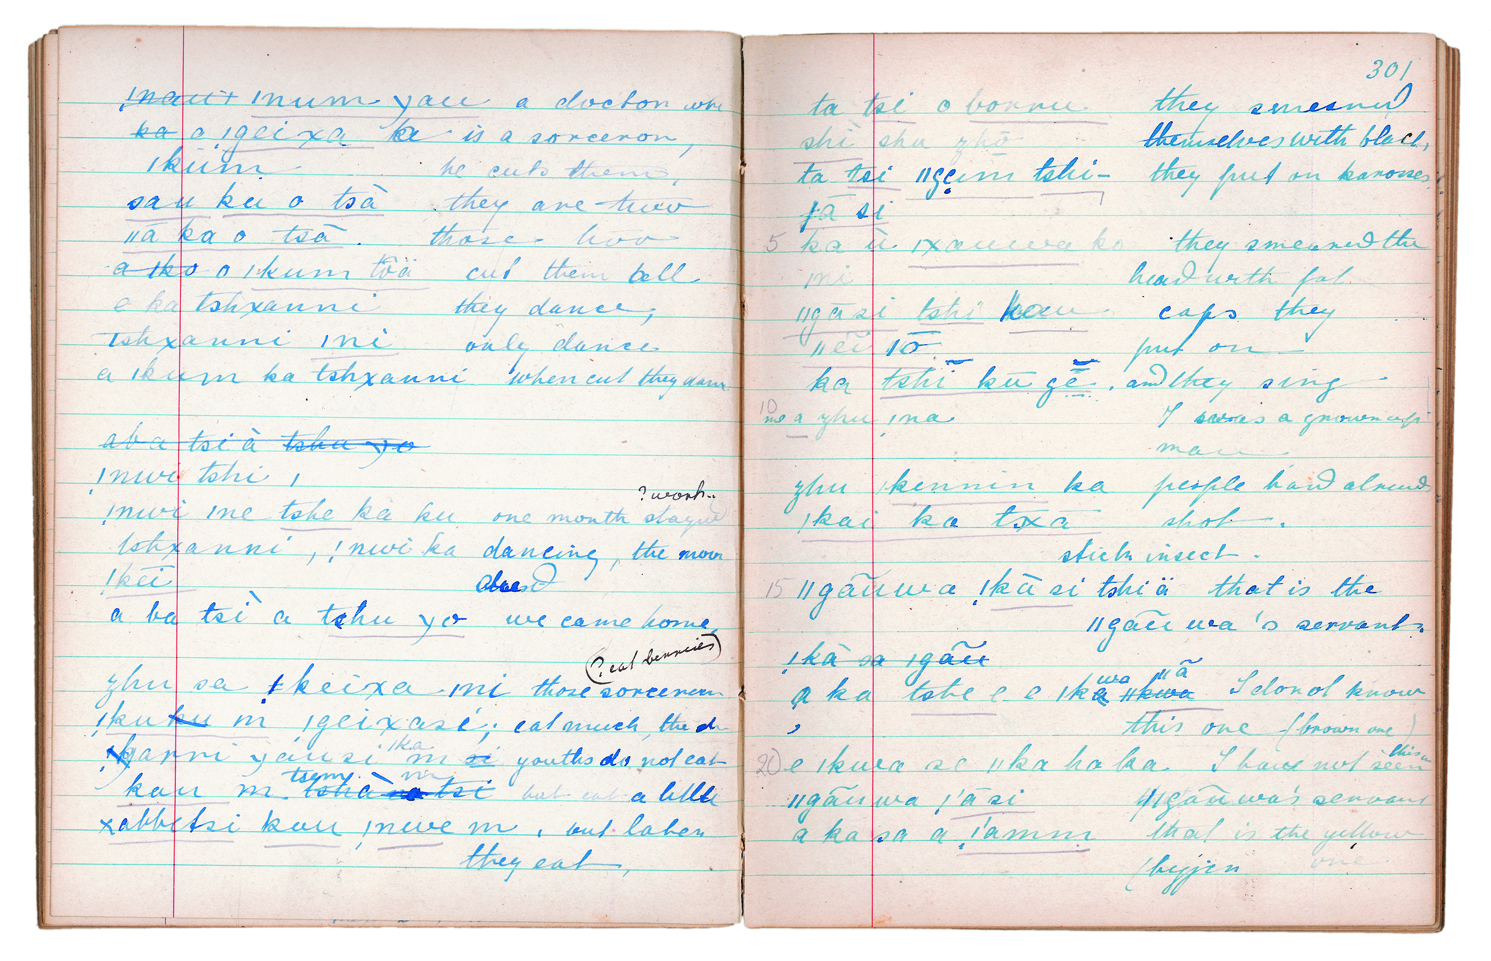 !nau+ !num yau a doctor who
ka o !geixa ka is a sorceror,
!kum he cuts them,
sau ku o tsà they are two
ǁā ka o tsā. those two
a !ko o !kum tŏä cut them tell
e ka tshxanni they dance,
tshxanni !ni only dance
a !kum ka tshxanni when cut they dance
aba tsi à tshu yo
!nwi tshi,
?work..
!nwi !ne tshe ka ku one month stayed
tshxanni, !nwi ka dancing, the moon
!kēi dead
a ba tsi à tshu yo we came home,
(?eat berries)
zhu sa !keixa !ni those sorcerers
!ku ku m !geixasi; eat much, the
!garni yausi !ka m si youths do not eat
tsemm ni
kau m tshà na tsi but eat a little
xabbetsi kau !nwe m, but later
they eat,
301
ta tsi o borru they smeared
shi shu zhō themselves with black,
ta tsi ǁgeum tshi- they put on karosses
ǀā si
5 ka ù !xauwa ko they smeared the
ni head with fat
ǁgāsi tshi kau caps they
ǁēi !ō put on
ka tshĭ kū gĕ. and they sing
10 me a zhu !na I was a grown up
man
zhu !kennin ka people had almost
!kai ka txā shot.
stick insect.
15 ǁgāuwa !kā si tshi ä that is the
ǁgāuwa's servant.
!kā sa !gāu
wa ǁā
a ka tshe e e !ka ǁkwa I do not know
, this one (brown one)
20 e !kwa se ǁka ha ka I have not seen this
ǁgāuwa !'ā si ǁgāuwa's servant
a ka sa a !'amm that is the yellow
(bigger one